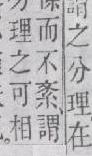 謂之分理、在
條而不紊、謂
分理之可相